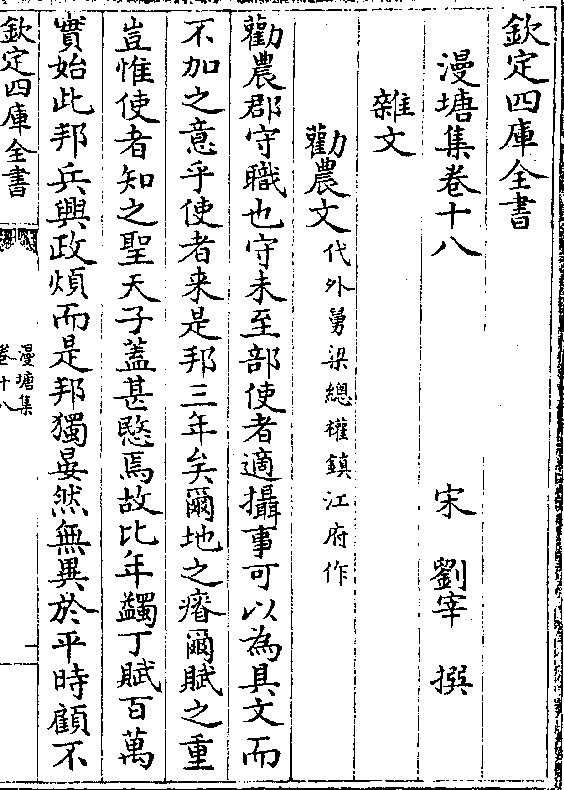 欽定四庫全書
漫塘集卷十八
宋 劉宰 撰
雜文
勸農文代外舅梁總權鎮江府作
勸農郡守職也守未至部使者適攝事可以為具文而
不加之意乎使者来是邦三年矣爾地之瘠爾賦之重
豈惟使者知之聖天子蓋甚愍焉故比年蠲丁賦百萬
實始此邦兵興政煩而是邦獨晏然無異於平時顧不
欽定四庫全書
漫塘集
卷十八